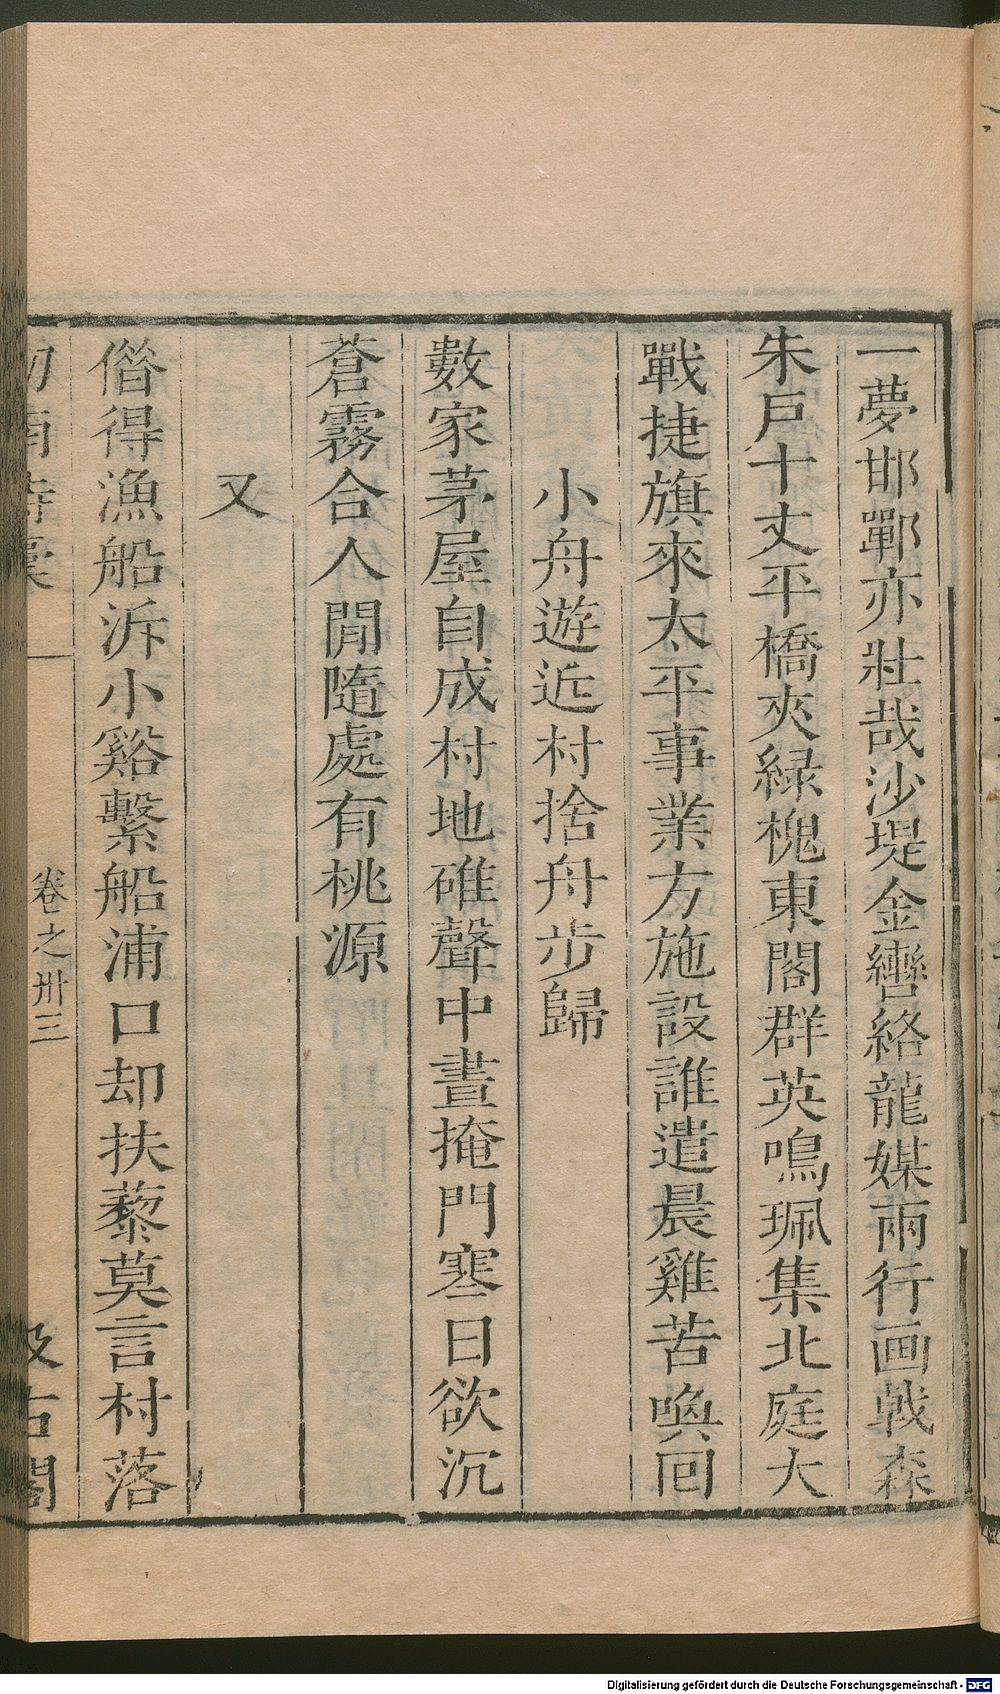 一夢邯鄲亦壯哉沙堤金轡絡龍媒兩行画戟森
朱戸十丈平橋夾緑槐東閣群英鳴珮集北庭大
戰捷旗來太平事業方施設誰遣晨雞苦喚囘
小舟遊近村捨舟步歸
數家茅屋自成村地碓聲中晝掩門寒日欲沉
蒼霧合人閒隨處有桃源
又
偺得漁船泝小谿繫船浦口却扶藜莫言村落
劍南詩稾
卷之卅三
汲古閣
Digitalisierung gefördert durch die Deutsche Forschungsgemeinschaft - DFG